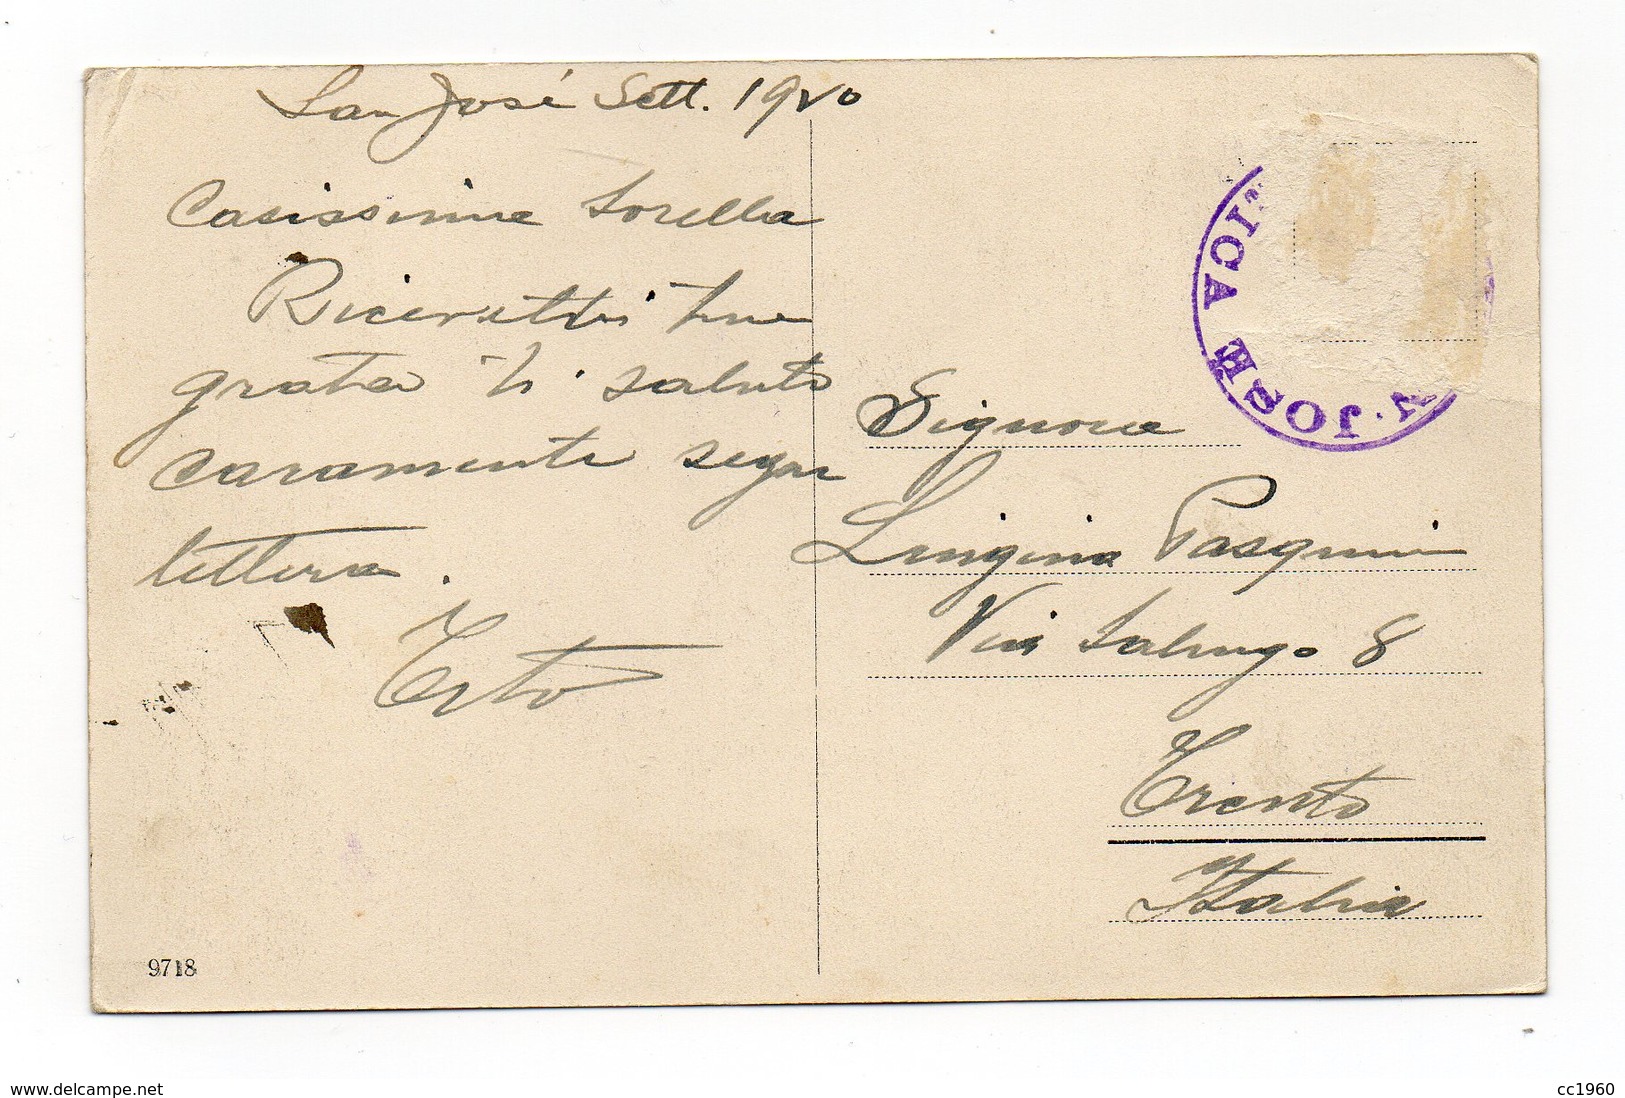 San José Sett. 1920
Carissima Sorella
Ricevetti tua
grata ti saluto
caramente segue
lettera.
Signora
Luigina Pasquini
Via
8
Trento
Italia
N JOSE
ICA
9718
www.delcampe.net
cc1960